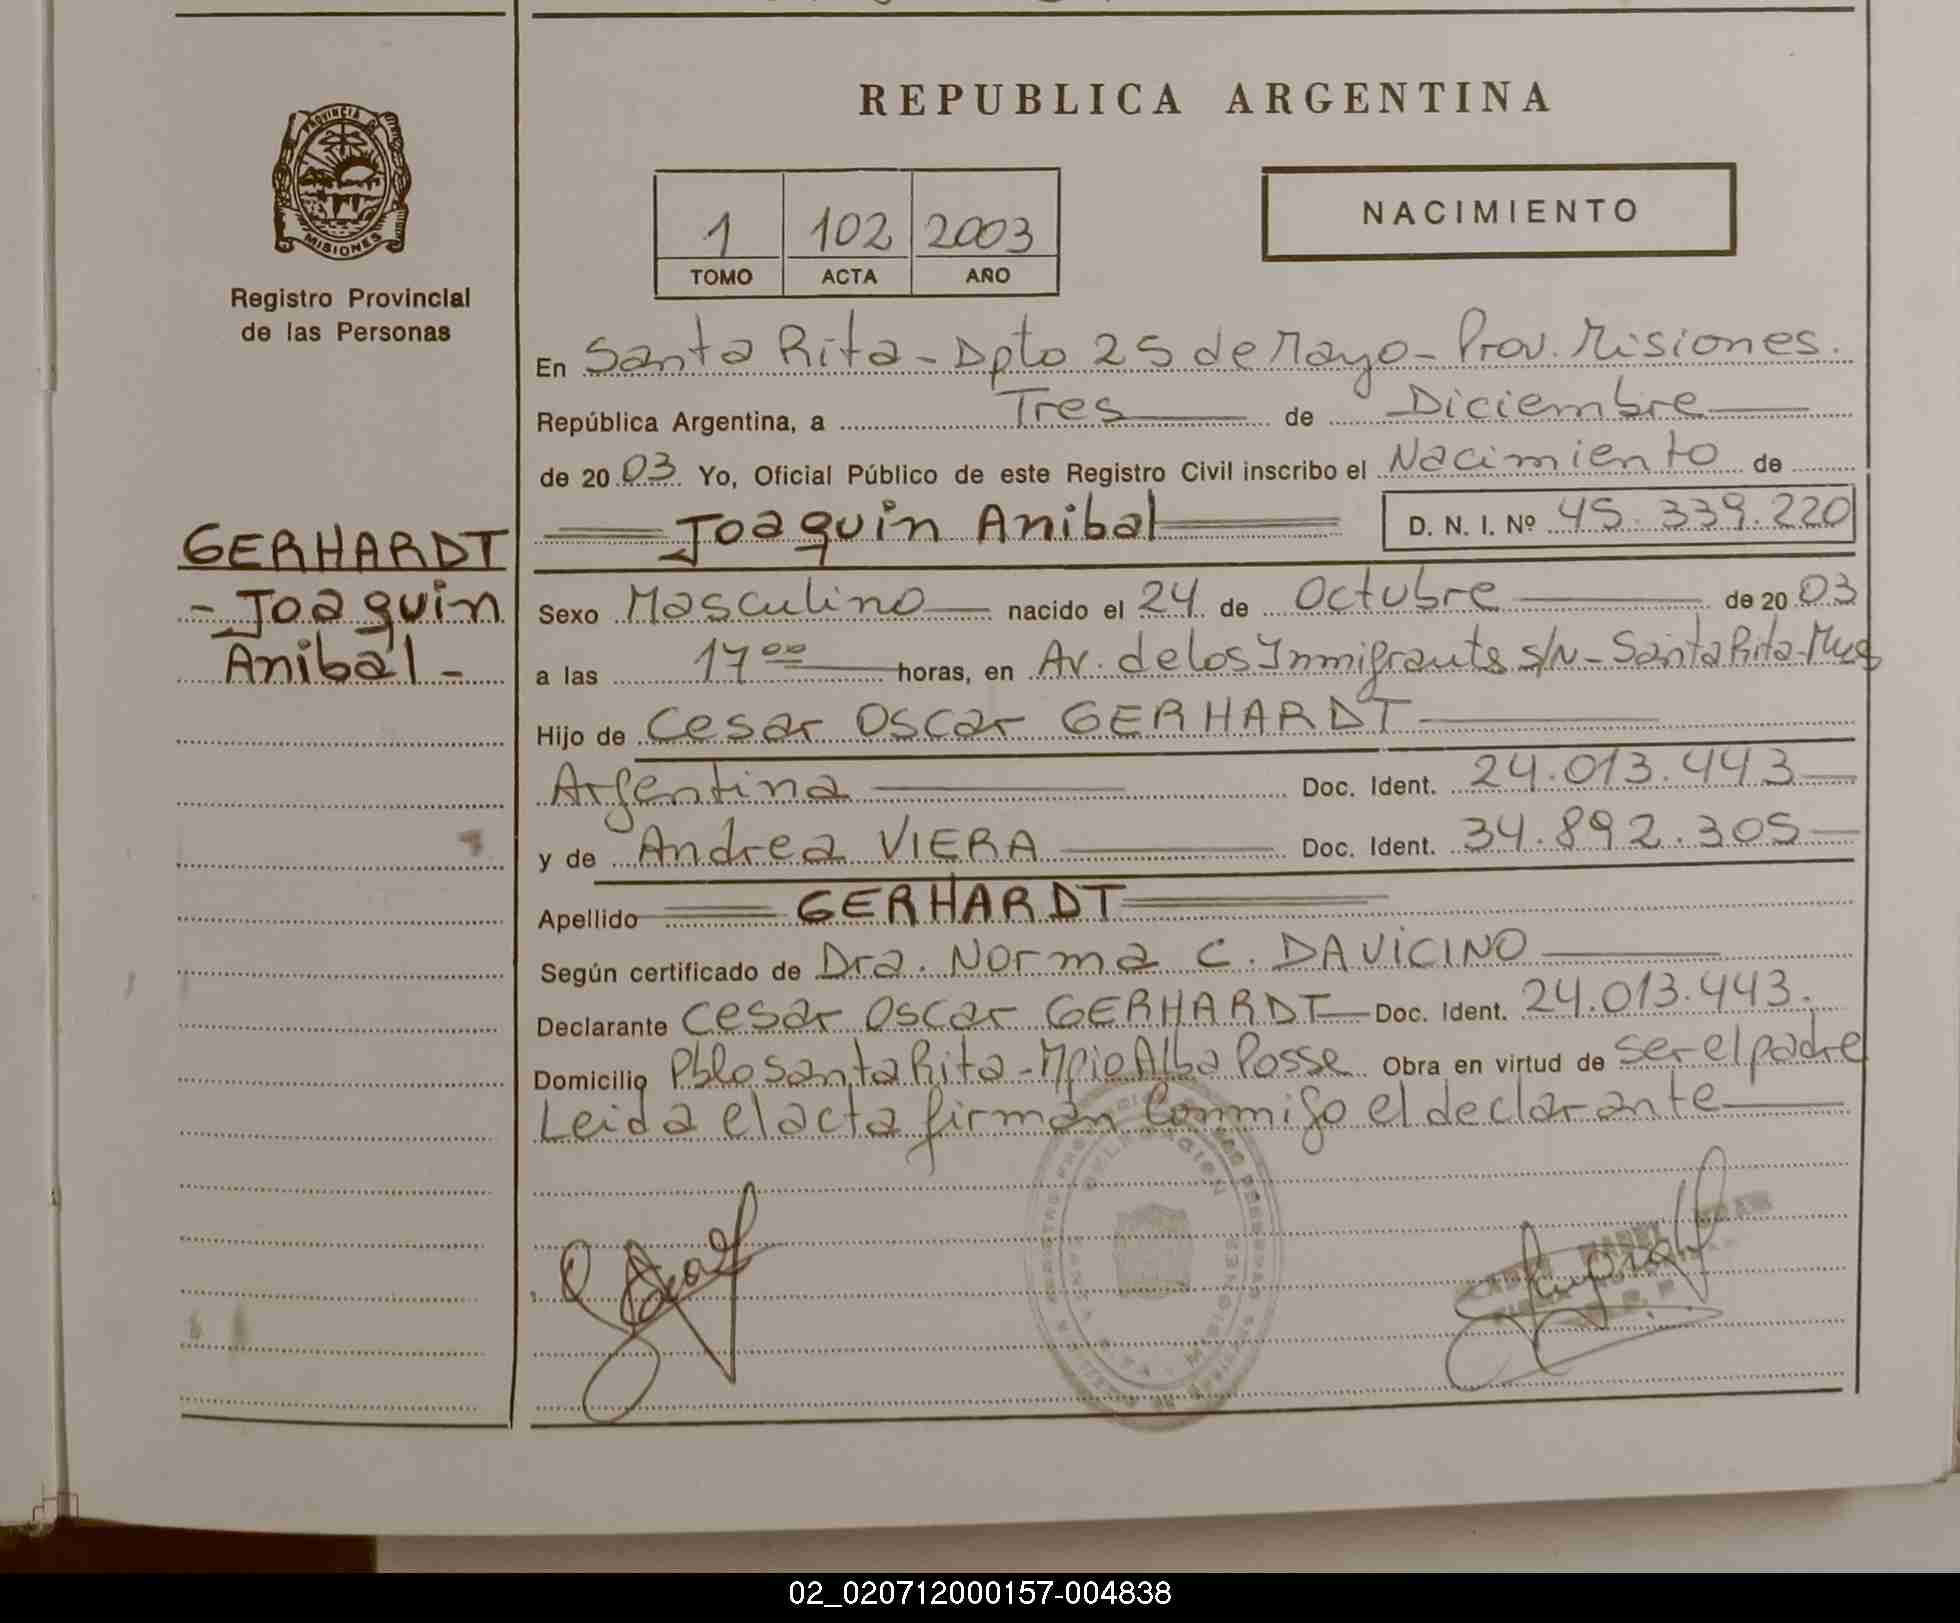 REPUBLICA ARGENTINA
PROVINCIA DE MISIONES
Registro Provincial
de las Personas
1 102 2003
TOMO ACTA AÑO
NACIMIENTO
En Santa Rita - Dpto 25 de Mayo - Prov. Misiones.
República Argentina, a Tres de Diciembre
de 20 03 Yo, Oficial Público de este Registro Civil inscribo el Nacimiento de
GERHARDT
- Joaquin
Anibal -
Joaquin Anibal D. N. I. Nº 45.339.220
Sexo Masculino nacido el 24 de Octubre de 20 03
a las 17 00 horas, en Av. de los Inmigrantes s/N - Santa Rita - Mnes
Hijo de Cesar Oscar GERHARDT
Argentina Doc. Ident. 24.013.443
y de Andrea VIERA Doc. Ident. 34.892.305
Apellido GERHARDT
Según certificado de Dra. Norma C. DAVICINO
Declarante Cesar Oscar GERHARDT Doc. Ident. 24.013.443.
Domicilio Pblo Santa Rita - Mpio Alba Posse Obra en virtud de ser el padre
Leida el acta firman conmigo el declarante
02_020712000157-004838